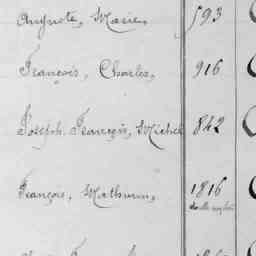 Auguste, Marie, 593
François, Charles, 916
Joseph, François, Michel 842
François, Mathurin, 1816